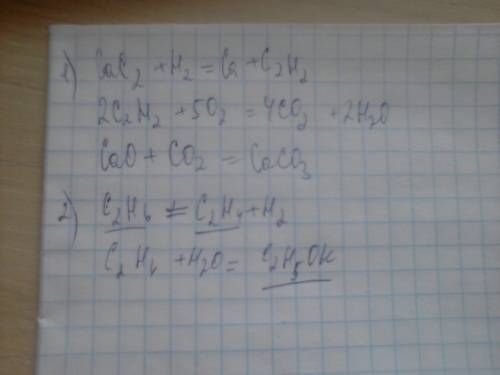 1) CaC2 + H2 = Ca + C2H2
2C2H2 + 5O2 = 4CO2 + 2H2O
CaO + CO2 = CaCO3
2) C2H6 ≠ C2H4 + H2
C2H4 + H2O = C2H5OH